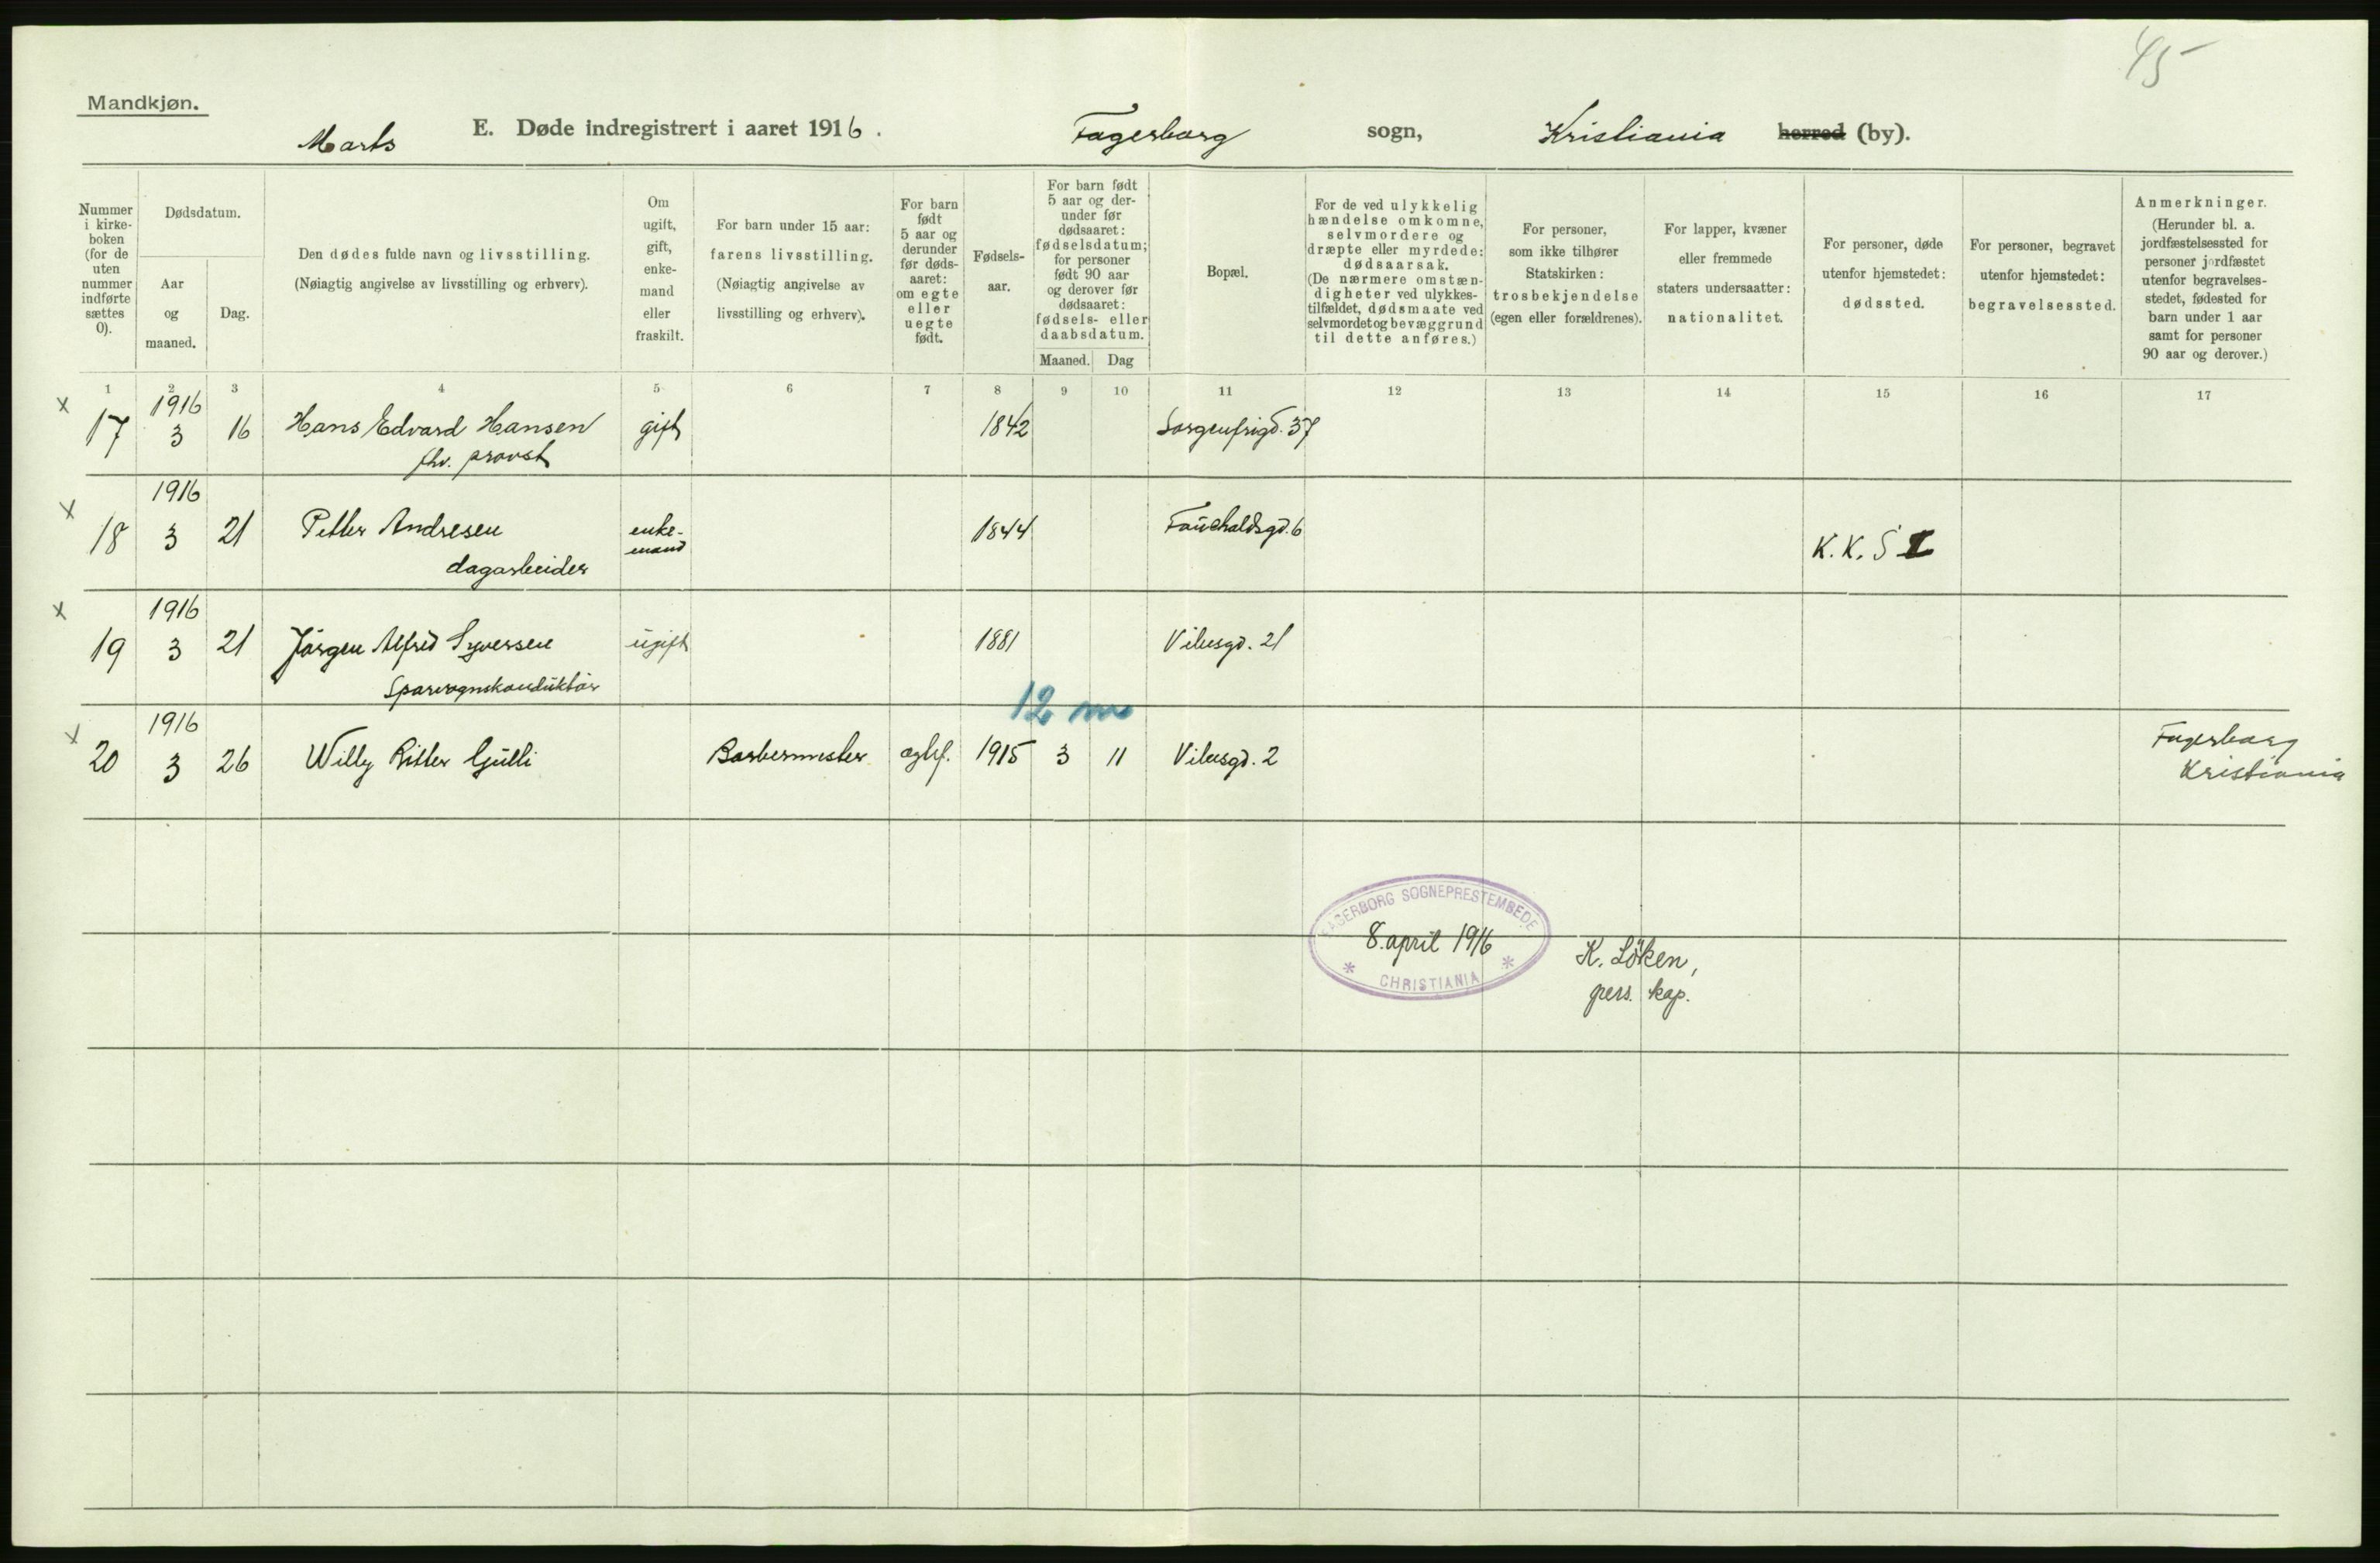 45
Mandkjøn.
Marts E. Døde indregistrert i aaret 1916. Fagerborg sogn, Kristiania herred (by).
Nummer i kirke-boken (for de uten nummer indførte sættes 0).
Dødsdatum.
Aar og maaned.
Dag.
Den dødes fulde navn og livsstilling.
(Nøiagtig angivelse av livsstilling og erhverv).
Om ugift, gift, enke-mand eller fraskilt.
For barn under 15 aar: farens livsstilling.
(Nøiagtig angivelse av livsstilling og erhverv).
For barn født 5 aar og derunder før døds-aaret: om egte eller uegte født.
Fødsels-aar.
For barn født 5 aar og der-under før dødsaaret: fødselsdatum; for personer født 90 aar og derover før dødsaaret: fødsels- eller daabsdatum.
Maaned.
Dag
Bopæl.
For de ved ulykkelig hændelse omkomne, selvmordere og dræpte eller myrdede: dødsaarsak.
(De nærmere omstæn-digheter ved ulykkes-tilfældet, dødsmaate ved selvmordet og bevæggrund til dette anføres.)
For personer, som ikke tilhører Statskirken: trosbekjendelse (egen eller forældrenes).
For lapper, kvæner eller fremmede staters undersaatter: nationalitet.
For personer, døde utenfor hjemstedet: dødssted.
For personer, begravet utenfor hjemstedet: begravelsessted.
Anmerkninger.
(Herunder bl. a. jordfæstelsessted for personer jordfæstet utenfor begravelses-stedet, fødested for barn under 1 aar samt for personer 90 aar og derover.)
1 2 3 4 5 6 7 8 9 10 11 12 13 14 15 16 17
x 17 1916 3 16 Hans Edvard Hansen gift 1842 Sorgenfrigd. 37
fhv. provst
x 18 1916 3 21 Petter Andresen enke-mand 1844 Fauchaldsgd. 6 K. K. S
dagarbeider
x 19 1916 3 21 Jörgen Alfred Syversen ugift 1881 Vibesgd. 21
Sporvognskonduktör
12 m
x 20 1916 3 26 Willy Ritter Gulli Barbermester egtef. 1915 3 11 Vibesgd. 2 Fagerborg
Kristiania
FAGERBORG SOGNEPRESTEMBEDE
8. april 1916
* CHRISTIANIA *
K. Löken,
pers. kap.